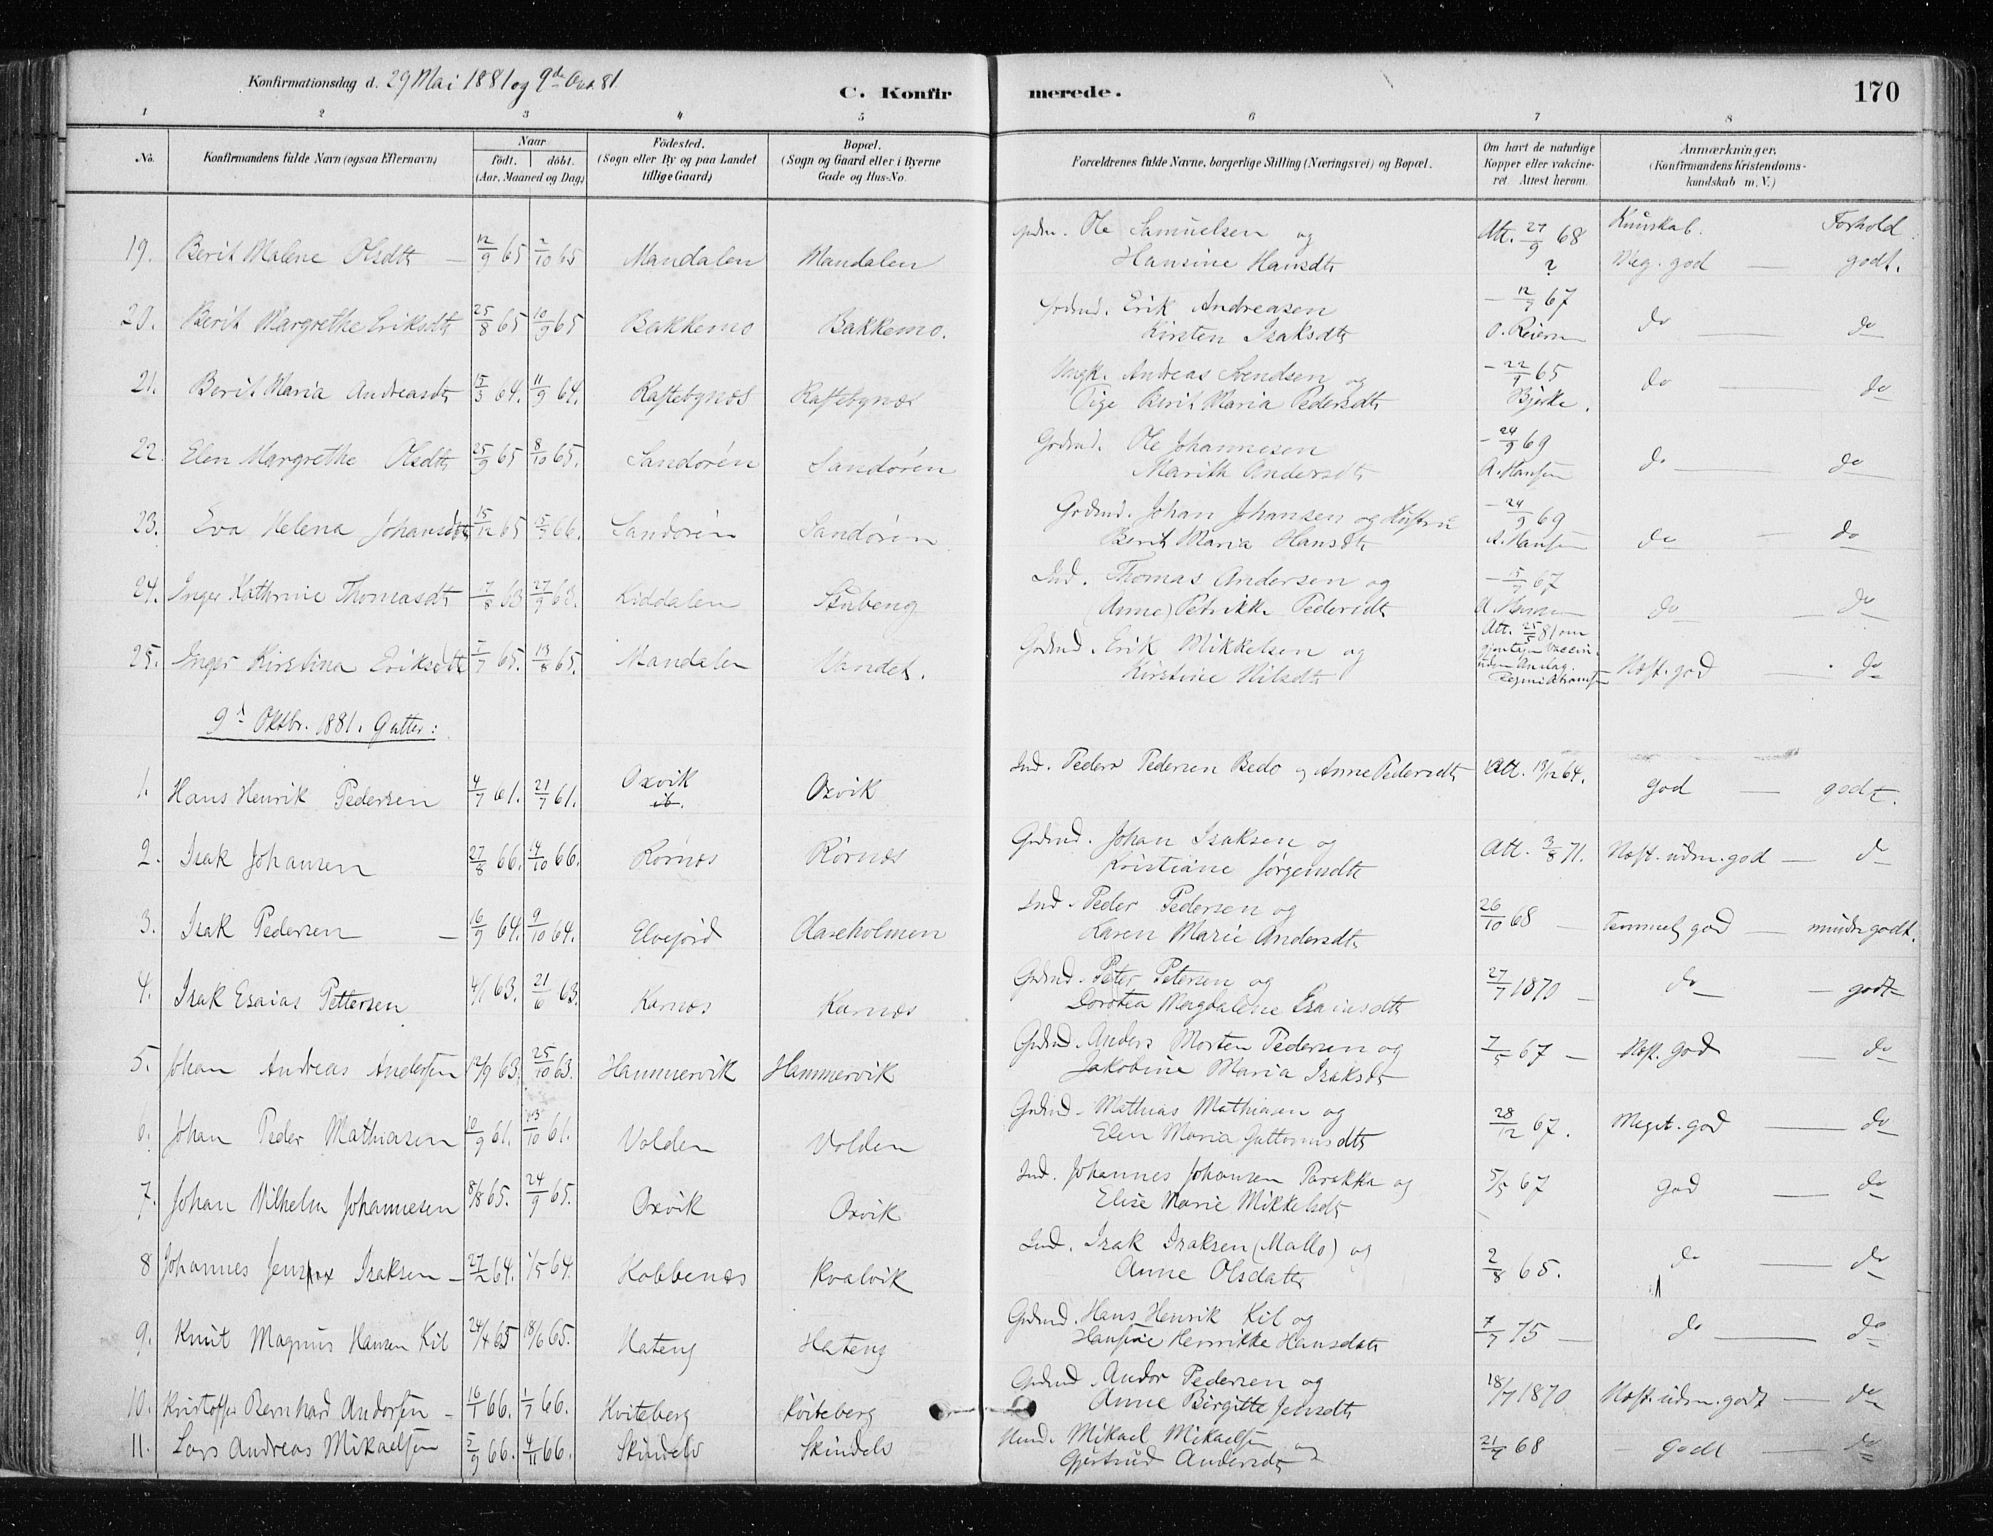 Konfirmationsdag d. 29 Mai 1881 og 9de Okt. 81.
C. Konfirmerede.
170
1 2 3 4 5 6 7 8
No. Konfirmandens fulde Navn (ogsaa Efternavn) Naar født. døbt. (Aar, Maaned og Dag) Fødested. (Sogn eller By og paa Landet tillige Gaard) Bopæl. (Sogn og Gaard eller i Byerne Gade og Hus-No. Forældrenes fulde Navne, borgerlige Stilling (Næringsvei) og Bopæl. Om havt de naturlige Kopper eller vakcineret. Attest herom. Anmærkninger. (Konfirmandens Kristendomskundskab m. V.)
Kunskab. Forhold.
19. Berit Malene Olsdtr 12/9 65 2/10 65 Mandalen Mandalen Ole Samuelsen og Att. 27/9 68
Hansine Hansdtr ? Meg. god — godt.
20. Berit Margrethe Eriksdtr 25/8 65 10/9 65 Bakkemo Bakkemo. Gbdmd. Erik Andreasen – 12/9 67 do — do
Kirsten Isaksdtr O. Reiersen
21. Berit Maria Andreasdtr 15/3 64. 11/9 64. Raftebgnæs Raftebgnæs Ungk. Andreas Svendsen og – 22/1 65 do — do
Pige Berit Maria Pedersdtr Bjerke.
22. Elen Margrethe Olsdtr 25/9 65 8/10 65. Sandørén Sandørén Gbdmd. Ole Johannesen – 24/9 69
Marith Andersdtr A. Hansen do — do
23. Eva Helena Johansdtr 15/12 65 15/7 66. Sandørén Sandørén Gbdmd. Johan Johansen og Hustru – 24/9 69
Berit Maria Hansdtr A. Hansen do — do
24. Inger Kathrine Thomasdtr 7/8 63 27/9 63. Kiddalen Stubeng Ind. Thomas Andersen og – 15/7 67
(Anne) Petrikke Pedersdtr A. Hansen do — do
25. Inger Kirstina Eriksdtr 7/7 65. 13/8 65. Mandalen Vandet. Gbdmd. Erik Mikkelsen og Att. 25/5 81 om
Kirstine Nilsdtr Næst. god — do
9d Oktbr. 1881. Gutter:
1. Hans Henrik Pedersen 4/7 61. 21/7 61. Oxvik Oxvik Ind. Peder Pedersen Bedo og Anne Pedersdtr Att. 13/12 64. god — godt.
2. Isak Johansen 27/8 66. 14/10 66. Rørnæs Rørnæs Gbdmd. Johan Isaksen og Att. 3/8 71. Næst. udm. god — do
Kristiane Jørgensdtr
3. Isak Pedersen — 16/9 64. 9/10 64. Elvejord Aaseholmen Ind. Peder Pedersen og 26/10 68 — Temmel. god — mindre godt.
Karen Marie Andersdtr
4. Isak Esaias Pettersen 4/1 63. 21/6 63. Karnæs Karnæs Gbdmd. Peter Petersen og 27/7 1870 — do — godt
Dorotea Magdalene Esaiasdtr
5. Johan Andreas Andersen 12/9 63. 25/10 63. Hammervik Hammervik Gbdmd. Anders Morten Pedersen og 7/5 67 — Næst. god — do
Jakobine Maria Isaksdtr
6. Johan Peder Mathiasen 10/9 61. 13/10 61. Volden Volden Gbdmd. Mathias Mathiasen og 28/12 67. Meget. god — do
Elen Maria Guttormsdtr
7. Johan Vilhelm Johannesen 8/8 65. 24/9 65. Oxvik Oxvik Ind. Johannes Johansen Parakka og 5/5 67 god — do
Elise Marie Mikkelsdtr
8 Johannes Isaksen — 27/2 64. 1/5 64. Kobbenæs Kvalvik Ind. Isak Isaksen (Mallo) og 2/8 65. do — do
Anne Olsdatr
9. Knut Magnus Hansen Kil 24/4 65 18/6 65. Hateng Hateng Gbdmd. Hans Henrik Kil og 7/7 75 — do — do
Hansine Henrikke Hansdatr
10. Kristoffer Bernhard Andorsen – 16/1 66. 1/7 66. Kviteberg Kviteberg Gbdmd. Andor Pedersen og 18/7 1870 Næst. udm. godt — do
Anne Birgitte Jensdtr
11. Lars Andreas Mikaelsen 5/9 66. 4/11 66. Skindelv Skindelv Mikael Mikaelsen og 21/9 68 – godt — do
Gjertrud Andersdtr